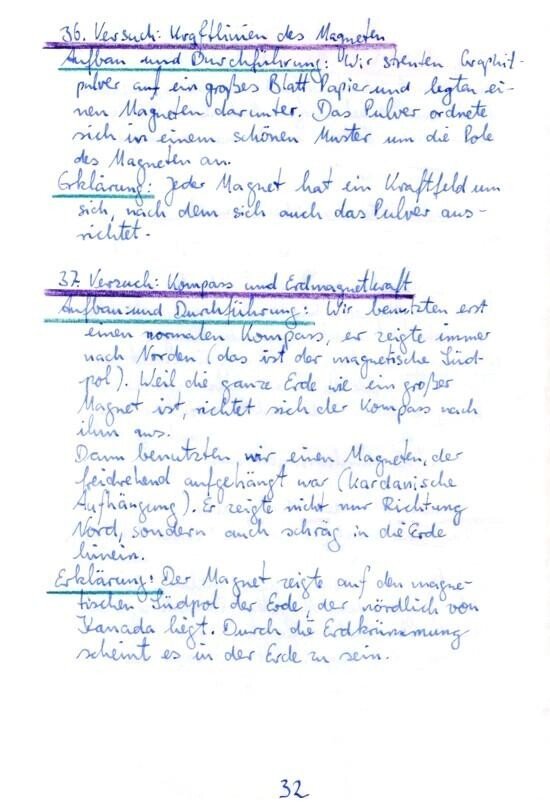 36. Versuch: Kraftlinien des Magneten
Aufbau und Durchführung: Wir streuten Graphit-
pulver auf ein großes Blatt Papier und legten ei-
nen Magneten darunter. Das Pulver ordnete
sich in einem schönen Muster um die Pole
des Magneten an.
Erklärung: Jeder Magnet hat ein Kraftfeld um
sich, nach dem sich auch das Pulver aus-
richtet.
37. Versuch: Kompass und Erdmagnetkraft
Aufbau und Durchführung: Wir benutzten erst
einen normalen Kompass, er zeigte immer
nach Norden (das ist der magnetische Süd-
pol). Weil die ganze Erde wie ein großer
Magnet ist, richtet sich der Kompass nach
ihm aus.
Dann benutzten wir einen Magneten, der
freidrehend aufgehängt war (Kardanische
Aufhängung). Er zeigte nicht nur Richtung
Nord, sondern auch schräg in die Erde
hinein.
Erklärung: Der Magnet zeigte auf den magne-
tischen Südpol der Erde, der nördlich von
Kanada liegt. Durch die Erdkrümmung
scheint es in der Erde zu sein.
32